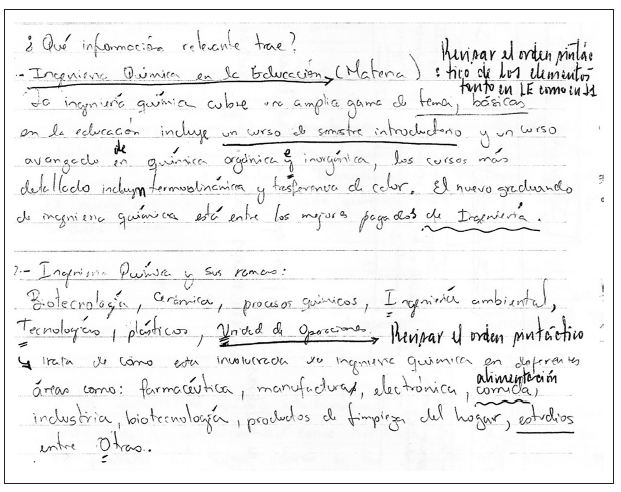 ¿Qué información relevante trae?
Revisar el orden sintác
- Ingeniería Química en la Educación, (Materia)
tico de los elementos
tanto en LE como en L1
La ingeniería química cubre una amplia gama de tema, básicas
en la educación incluye un curso de semestre introductorio y un curso
avanzado de en química orgánica e inorgánica, los cursos más
detallado incluyn termodinámica y trasferencia de calor. El nuevo graduando
de ingeniería química está entre los mejores pagados de Ingeniería.
2.- Ingeniería Química y sus ramas:
Biotecnología, Cerámica, procesos químicos, Ingeniería ambiental,
Tecnologías, plásticos, Unidad de Operaciones. Revisar el orden sintáctico
Trata de cómo esta involucrada la ingeniería química en diferentes
alimentación
áreas como: farmacéutica, manufacturas, electrónica, comida,
industria, biotecnología, productos de limpieza del hogar, estudios
entre Otras..